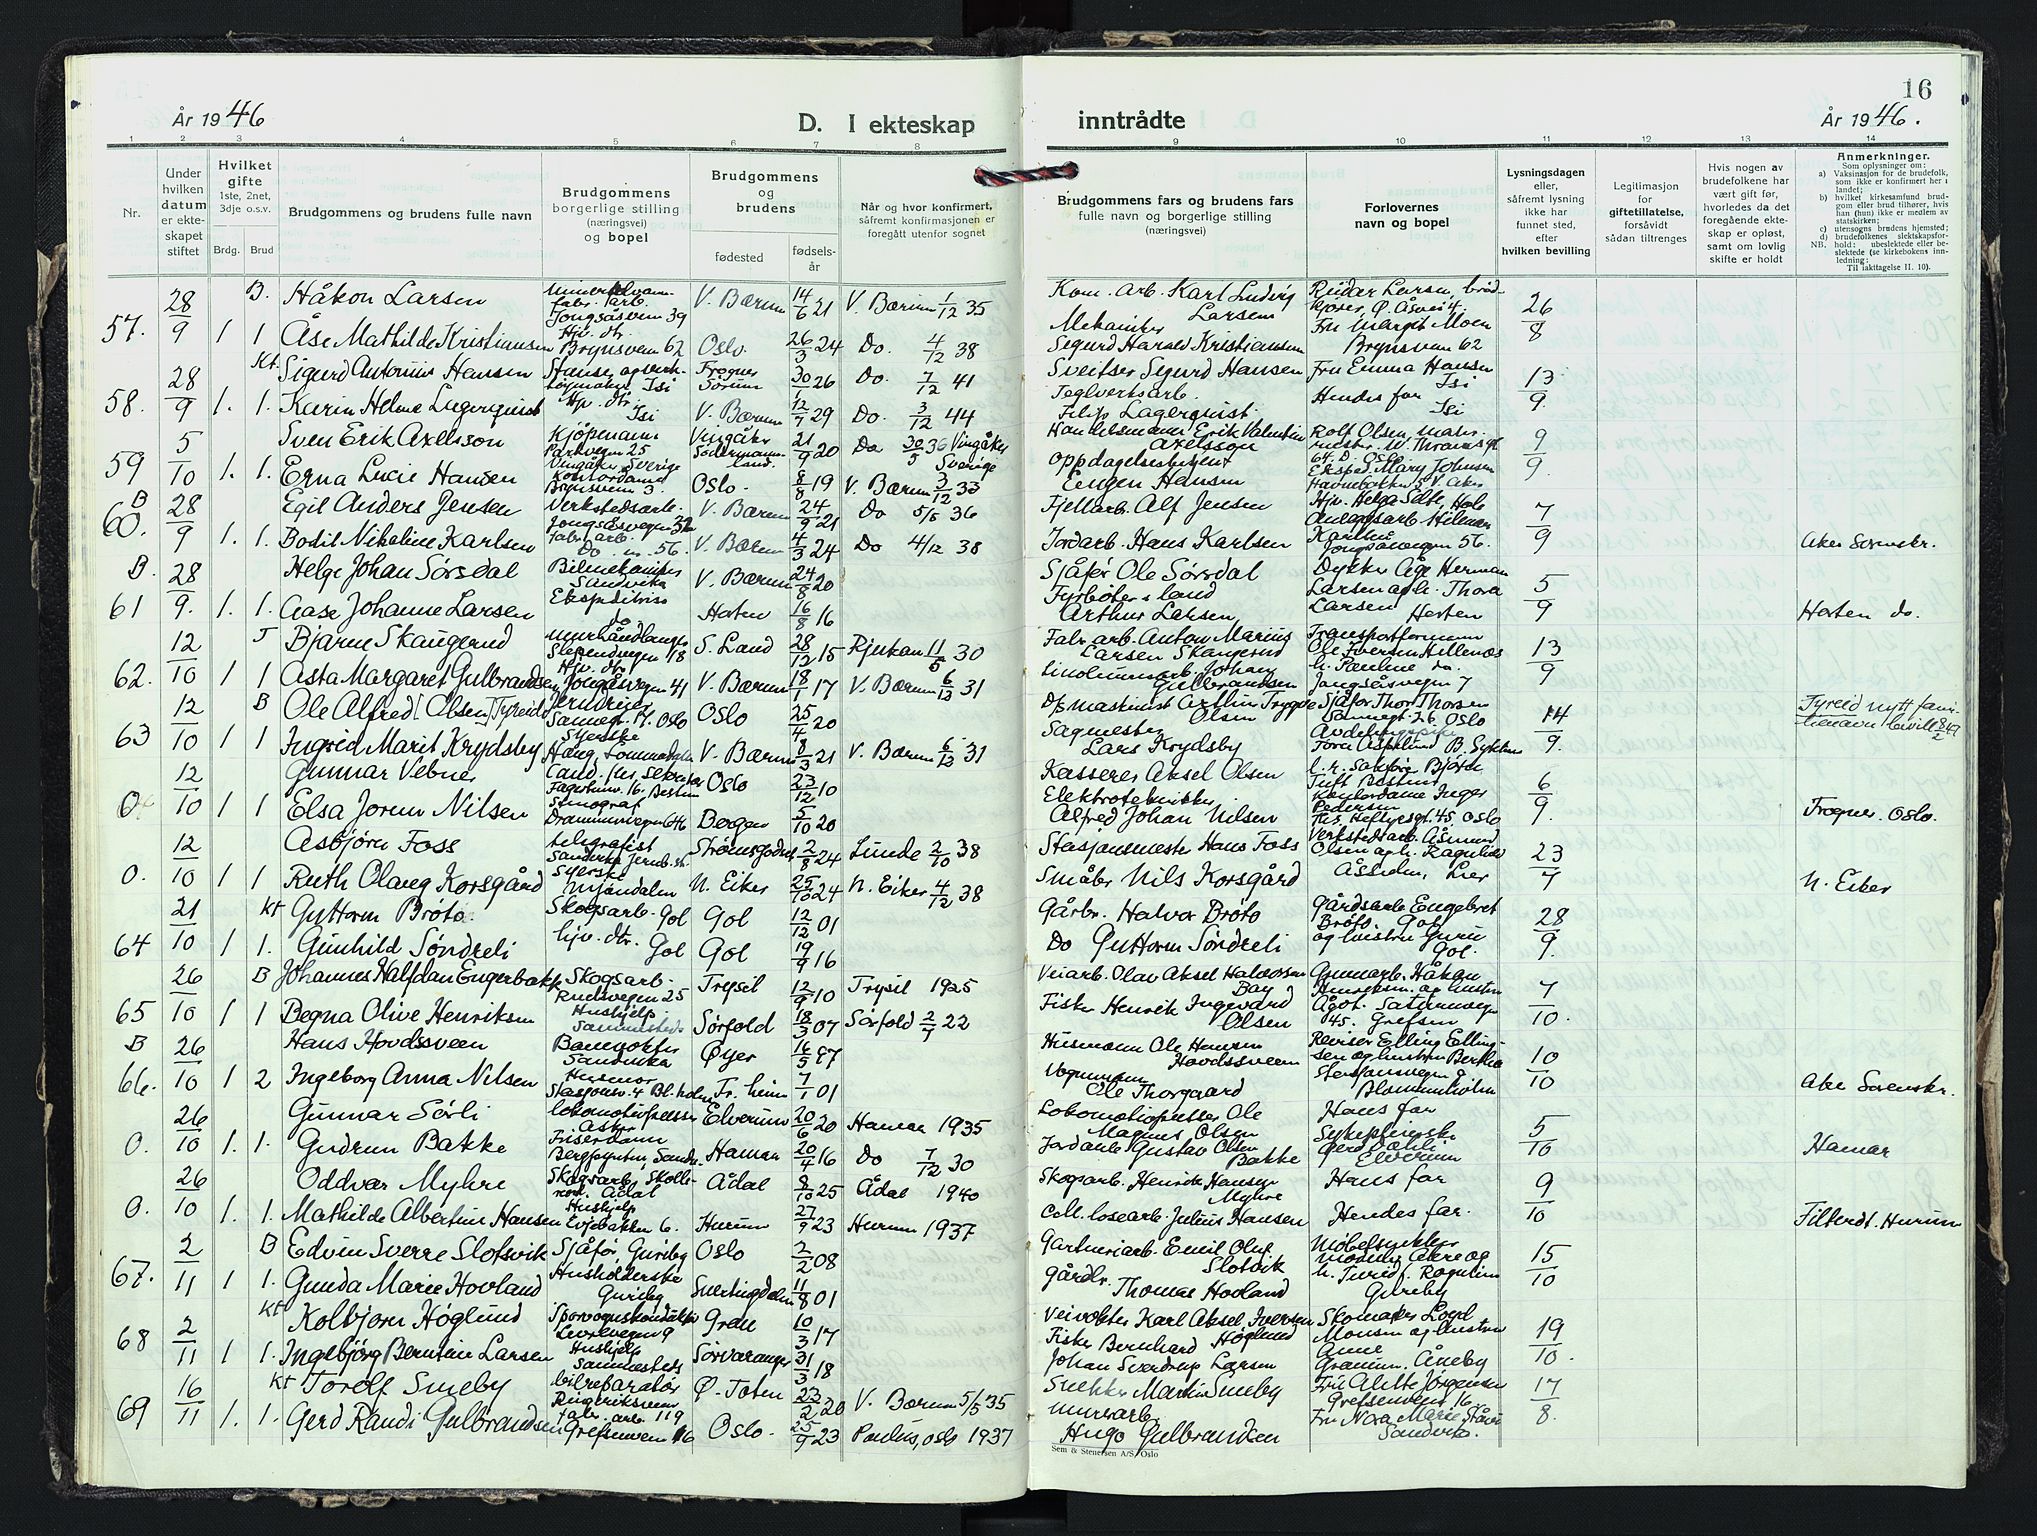 År 1946
D. I ekteskap
inntrådte
16
År 1946.
1 2 3 4 5 6 7 8 9 10 11 12 13 14
Nr.
Under hvilken datum er ekteskapet stiftet
Hvilket gifte 1ste, 2net, 3dje o.s.v.
Brdg. Brud
Brudgommens og brudens fulle navn
Brudgommens borgerlige stilling (næringsvei) og bopel
Brudgommens og brudens
fødested
fødselsår
Når og hvor konfirmert, såfremt konfirmasjonen er foregått utenfor sognet
Brudgommens fars og brudens fars fulle navn og borgerlige stilling (næringsvei)
Forlovernes navn og bopel
Lysningsdagen eller, såfremt lysning ikke har funnet sted, efter hvilken bevilling
Legitimasjon for giftetillatelse, forsåvidt sådan tiltrenges
Hvis nogen av brudefolkene har vært gift før, hvorledes da det foregående ekteskap er opløst, samt om lovlig skifte er holdt
Anmerkninger.
Som oplysninger om:
a) Vaksinasjon for de brudefolk, som ikke er konfirmert her i landet;
b) hvilket kirkesamfund brudgom eller brud tilhører, hvis han (hun) ikke er medlem av statskirken;
c) utensogns brudens hjemsted;
d) brudefolkenes slektskapsforhold: ubeslektede eller beslektede (se kirkebokens innledning; Til iakttagelse II. 10).
NB.
28/9 B. Håkon Larsen Jongsåsveien 39 V. Bærum 14/6 21 V. Bærum 1/12 35 Kom. arb. Karl Ludvig Larsen 26/8
57. 1 1 Åse Mathilde Kristiansen Hjv. dtr. Brynsveien 62 Oslo 26/3 24 Do. 4/12 38 Mekaniker Sigurd Harald Kristiansen Fru Margit Moen Brynsveien 62
28/9 Kt. Sigurd Antonius Hansen Isi Frogner Sørum 30/1 26 Do. 7/12 41 Sveitser Sigurd Hansen Fru Emma Hansen Isi 13/9
58. 1. 1. Karin Helene Lagerquist Hjv. dtr. Isi V. Bærum 12/7 29 Do. 3/12 44 Teglverksarb. Filip Lagerquist Hendes far Isi
5/10 Sven Erik Axelsson Kjøpmann Parkvegen 25 Vingåker, Sverige Vingåker Södermannland. 21/9 20 Do 30/5 36 Vingåker Sverige Handelsmann Erik Valentin Axelsson Rolf Olsen 9/9
59 1. 1. Erna Lucie Hansen Kontordame Brynsveien 3. Oslo 8/8 19 V. Bærum 3/12 33 Oppdagelsesbetjent Eugen Hansen
B 28/9 Egil Anders Jensen Verkstedsarb. Jongsåsvegen 32 V. Bærum 24/9 21 Do 5/5 36 Fjellarb. Alf Jensen 7/9
60. 1. 1. Bodil Nikoline Karlsen Fabr. arb. Do. 56. V. Bærum 4/3 24 Do 4/12 38 Jordarb. Hans Karlsen Jongsåsvegen 56. Aker Sorenskr.
B. 28/9. Helge Johan Sørsdal Bilmekaniker Sandvika V. Bærum 24/8 20 Sjåfør Ole Sørsdal Dykker Åge Herman 5/9
61 1. 1. Aase Johanne Larsen Ekspeditrise do Horten 16/8 16 Fyrbøter i land Arthur Larsen Larsen og h. Thora Larsen Horten Horten do.
12/10 T Bjarne Skaugerud Murhåndlanger Slependvegen 18 S. Land 28/12 15 Rjukan 11/5 30 Fabr. arb. Anton Marius Larsen Skaugerud Transportformann 13/9
62. 1 1 Asta Margaret Gulbrandsen Hjv. dtr. Jongåsvegen 41 V. Bærum 18/1 17 V. Bærum 6/12 31 Linoleumsarb. Johan Gulbrandsen h. Pauline do. Jongsåsvegen 7
12/10 B Ole Alfred [Olsen] Tyreid Oslo Oslo 25/4 20 D/s maskinist Arthur Trygve Olsen Sjåfør Thor Thorsen Oslo 14/9. Tyreid nytt familienavn bevill 8/2 47
63 1 1 Ingrid Marit Krydsby Syerske V. Bærum 8/3 21 V. Bærum 6/12 31 Sagmester Lars Krydsby
12/10 Gunnar Vebner Oslo 23/12 10 Kasserer Aksel Olsen 6/9.
1 1 Elsa Jorun Nilsen Stenograf Drammensvegen 646 Bergen 5/10 20 Elektrotekniker Alfred Johan Nilsen Kontordame Inger Pedersen Ths. Heftyesgt. 45, Oslo Frogner. Oslo.
12/10 Asbjørn Foss telegrafist Strømsgodset 2/8 24 Lunde 2/10 38 Stasjonsmester Hans Foss Verkstedarb. Åsmund Olsen og h. Ragnhild Lier 23/7
0. 1 1 Ruth Olaug Korsgård Syerske Mjøndalen N. Eiker 25/10 24 N. Eiker 4/12 38 Småbr. Nils Korsgård N. Eiker
21/10 Kt Guttorm Brøto Skogsarb. Gol Gol 12/12 01 Gårbr. Halvor Brøto Gårdsarb Engebret Brøto, Gol 28/9.
64 1 1. Gunhild Søndreli hjv. dtr. Gol Gol 19/9 16 Do Guttorm Søndreli og hustru Guru Gol.
26/10 B Johannes Halfdan Engerbakk Skogsarb. Rudsvegen 25 Trysil 12/9 10 Trysil 1925 Veiarb. Olav Aksel Halvorsen Bay Håkon Henriksen og hustru 7/10.
65 1 1 Begna Olive Henriksen Hushjelp Sammesteds Sørfold 18/3 07 Sørfold 2/7 22 Fisker Henrik Ingevard Olsen Ågot. Saturnvegen 45. Grefsen
B 26/10 Hans Hovdssveen Banevokter Sandvika Øyer 16/5 97 Husmann Ole Hansen Hovdssveen Revisor Elling Ellingsen og hustru Bertha 10/10
66. 1 2 Ingeborg Anna Nilsen Stasjonsv. 4 Bl. holm Tr. heim 7/1 01 Vognmann Ole Thorgaard Stasjonsvegen 8 Blommenholm Aker Sorenskr.
26/10 Gunnar Sørli Lokomotivpusser Asker Elverum 20/6 20 Hamar 1935 Lokomotivpusser Ole Magnus Olsen Hans far 5/10
0. 1. 1. Gudrun Bakke Friserdame Hamar 20/4 16 Do 7/12 30 Jordarb Gustav Olsen Bakke Sykepleierske Elverum Hamar
26/10 Oddvar Myhre Skogsarb. Ådal Ådal 8/10 25 Ådal 1940 Skogsarb. Henrik Hansen Myhre Hans far 9/10
0. 1. 1. Mathilde Albertine Hansen Hushjelp Evjebakken 6. Hurum 27/9 23 Hurum 1937 Cell. losearb. Julius Hansen Hendes far. Filtvedt. Hurum
2/11 B Edvin Sverre Slotsvik Sjåfør, Guriby Oslo 2/2 08 Gartneriarb. Emil Oluf Slotsvik 15/10
67. 1 1. Gunda Marie Hovland Husholderske Guriby Svertingdalen 11/8 01 Gårdbr. Thomas Hovland Guriby
2/11 Kt Kolbjørn Høglund Sporvognskonduktør Gran 10/3 17 Veivokter Karl Aksel Iversen Høglund Skomaker Loyd Monsen og hustru 19/10.
68 1 1. Ingebjørg Berntine Larsen Hushjelp Sammesteds Sørvaranger 31/3 18 Fisker Bernhard Johan Sverdrup Larsen Anne Åneby
16/11 Kt Torolf Smeby bilreparatør Ringeriksveien 119 Ø. Toten 23/2 20 V. Bærum 5/5 35 Snekker Martin Smeby Fru Alette Jørgensen Grefsenveien 16. 17/8.
69 1. 1. Gerd Randi Gulbrandsen fabr. arb. Grefsenveien 16 Oslo. 25/9 23 Paulus, Oslo 1937 Murerarb. Hugo Gulbrandsen Fru Nora Marie Sandvika.
Sem & Stenersen A/S, Oslo